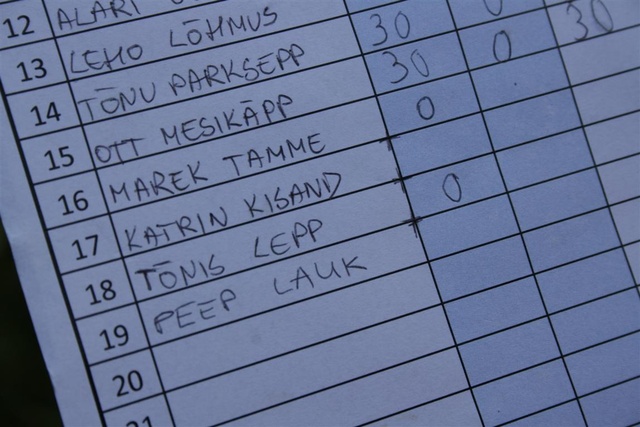 12 ALARI
13 LEHO LÕHMUS
14 TÕNU PARKSEPP 30 0
15 OTT MESIKÄPP 30 0 30
16 MAREK TAMME 0
17 KATRIN KISAND
18 TÕNIS LEPP 0
19 PEEP LAUK
20
21